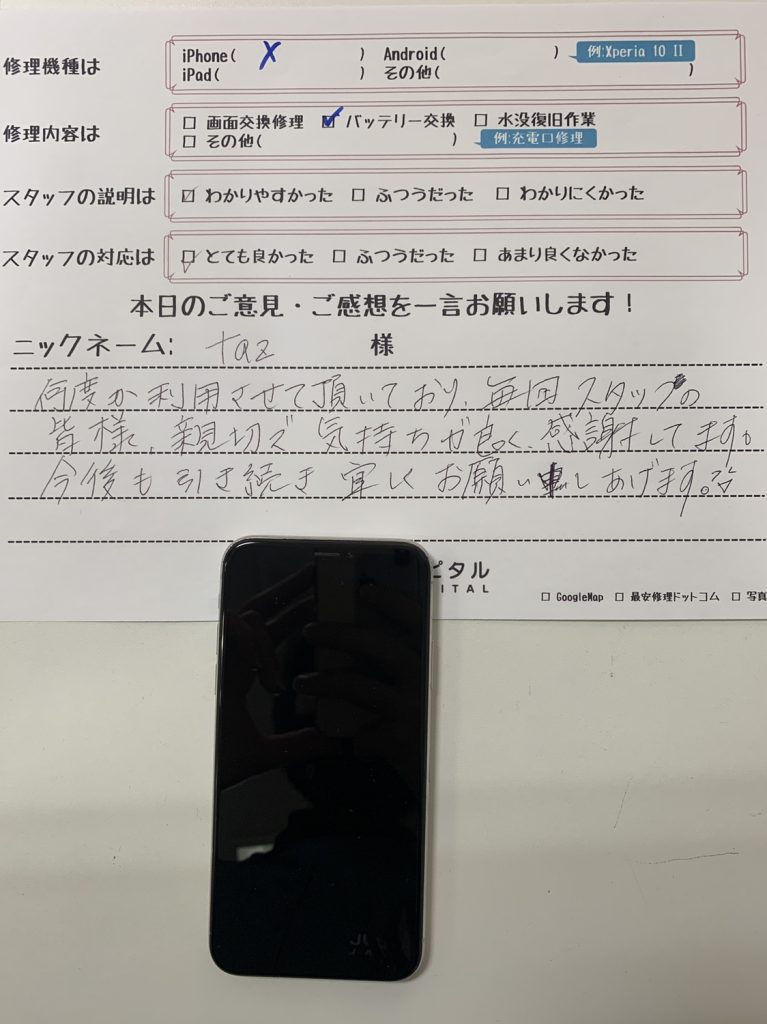 修理機種は
iPhone( X ) Android( ) 例:Xperia 10 II
iPad( ) その他( )
修理内容は
□ 画面交換修理 ☑ バッテリー交換 □ 水没復旧作業
□ その他( ) 例:充電口修理
スタッフの説明は ☑ わかりやすかった □ ふつうだった □ わかりにくかった
スタッフの対応は ☑ とても良かった □ ふつうだった □ あまり良くなかった
本日のご意見・ご感想を一言お願いします!
ニックネーム: taz 様
何度か利用させて頂いており、毎回スタッフの
皆様、親切で気持ちが良く、感謝してます。
今後も引き続き宜しくお願い申しあげます。
ピタル
ITAL
□ GoogleMap □ 最安修理ドットコム □ 写真